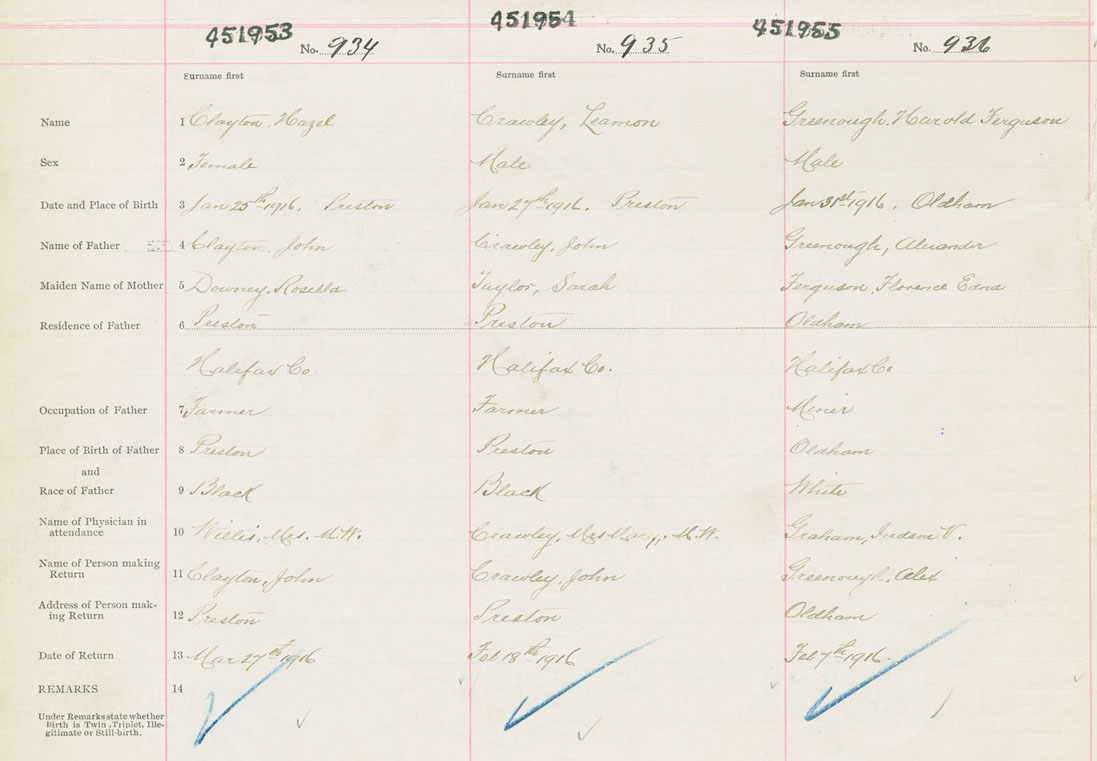 451953 451954 451955
No. 934 No. 935 No. 936
Surname first Surname first Surname first
Name 1 Clayton, Hazel Crawley, Leamon Greenough, Harold Ferguson
Sex 2 Female Male Male
Date and Place of Birth 3 Jan 25th 1916. Preston Jan 27th 1916. Preston Jan 31st 1916. Oldham
Name of Father 4 Clayton, John Crawley, John Greenough, Alexander
Maiden Name of Mother 5 Downey, Rosella Taylor, Sarah Ferguson, Florence Edna
Residence of Father 6 Preston Preston Oldham
Halifax Co. Halifax Co. Halifax Co
Occupation of Father 7 Farmer Farmer Miner
Place of Birth of Father 8 Preston Preston Oldham
and
Race of Father 9 Black Black White
Name of Physician in
attendance 10 Willis, Mrs. M.W. Crawley, Mrs Mary, M.W. Graham, Judson V.
Name of Person making
Return 11 Clayton, John Crawley, John Greenough, Alex
Address of Person mak-
ing Return 12 Preston Preston Oldham
Date of Return 13 Mar 27th 1916 Feb 18th 1916 Feb 7th 1916.
REMARKS 14
Under Remarks state whether
Birth is Twin, Triplet, Ille-
gitimate or Still-birth.